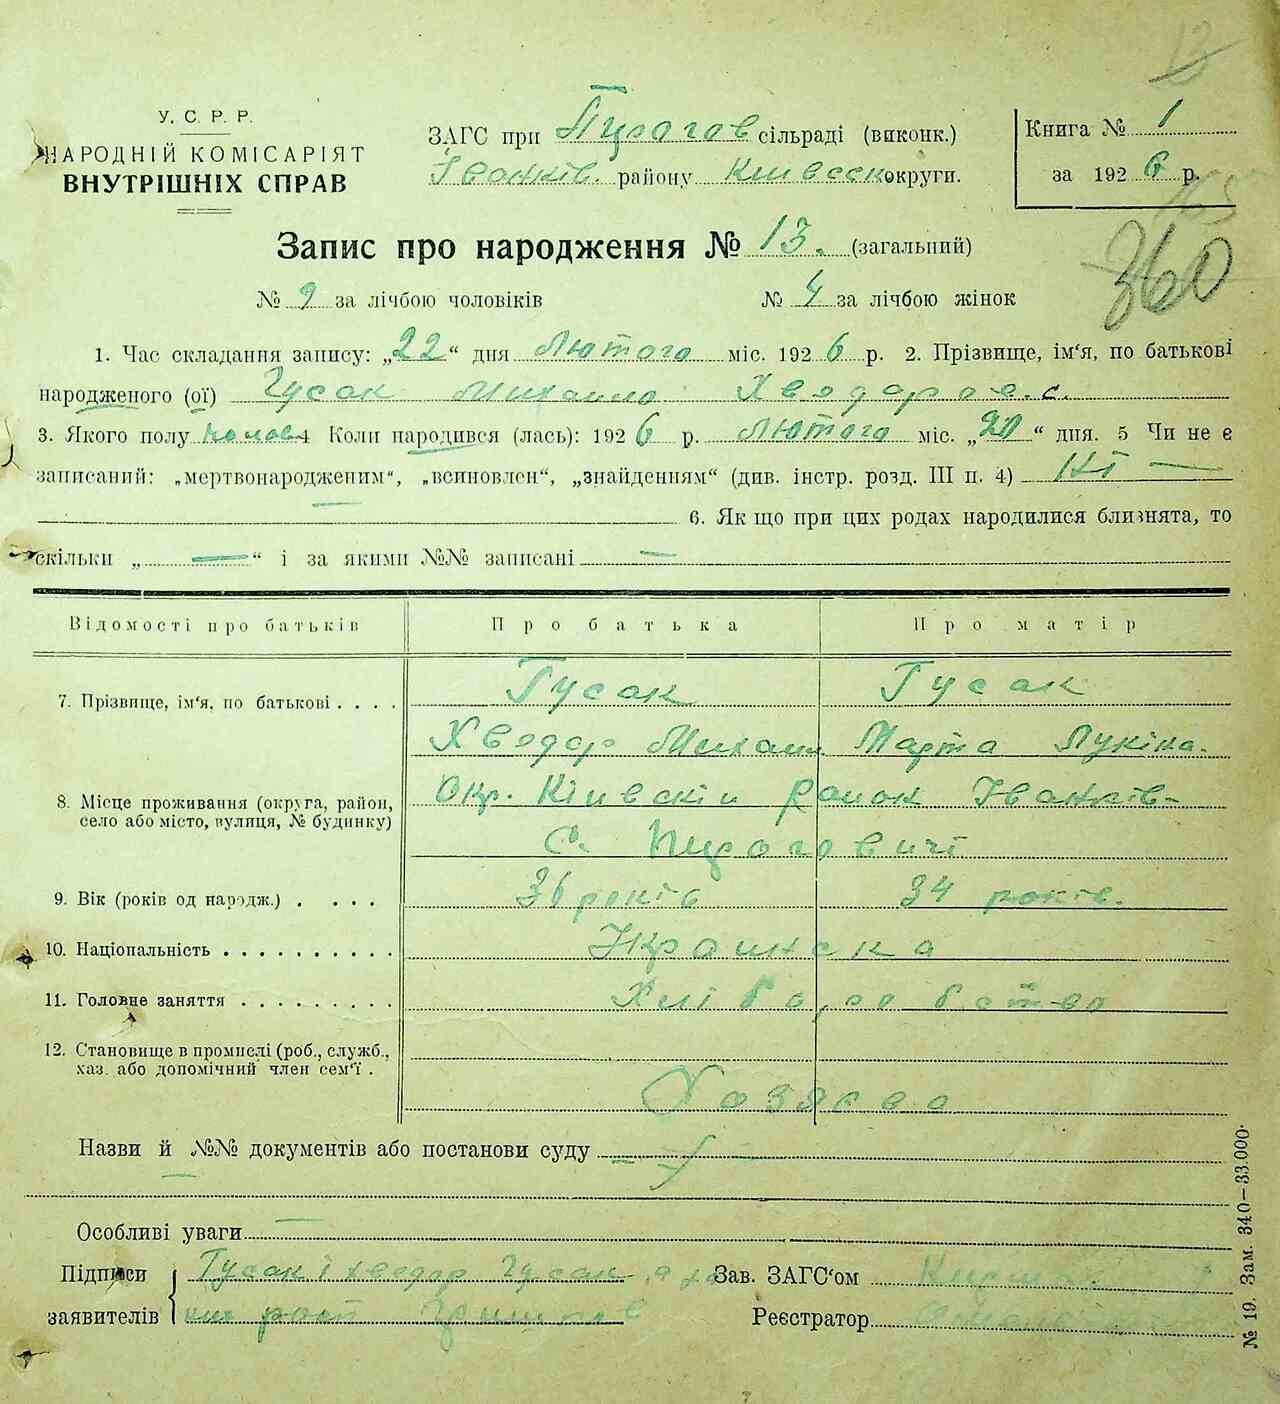 13
У. С. Р. Р.
НАРОДНІЙ КОМІСАРІЯТ
ВНУТРІШНІХ СПРАВ
ЗАГС при сільраді (виконк.)
Іванків. району Київськ округи.
Книга № 1
за 1926 р.
165
360
Запис про народження № 13. (загальний)
№ 9 за лічбою чоловіків № 4 за лічбою жінок
1. Час складання запису: „22“ дня Лютого міс. 1926 р. 2. Прізвище, ім‘я, по батькові
народженого (ої) Гусак Михайло Хведоров.
3. Якого полу 4 Коли народився (лась): 1926 р. Лютого міс. „20“ дня. 5 Чи не є
записаний: „мертвонародженим“, „всиновлен“, „знайденням“ (див. інстр. розд. III п. 4) Ні —
6. Як що при цих родах народилися близнята, то
скільки „ — “ і за якими №№ записані —
Відомості про батьків Про батька Про матір
7. Прізвище, ім‘я, по батькові . . . . Гусак Гусак
Хведор Михайл. Марта Лукіна.
8. Місце проживання (округа, район, Окр. Київскій район Іванків-
село або місто, вулиця, № будинку) С.
9. Вік (років од народж.) . . . . . 36 років 34 років.
10. Національність . . . . . . . . . . Украинска
11. Головне заняття . . . . . . . . . Хлібаробство
12. Становище в промислі (роб., служб.,
хаз. або допомічний член сем‘ї . Хозяева
Назви й №№ документів або постанови суду —
Особливі уваги
Підписи Гусак і хведор Гусак Зав. ЗАГС‘ом
заявителів Реєстратор
№ 19. Зам. 340–33.000.